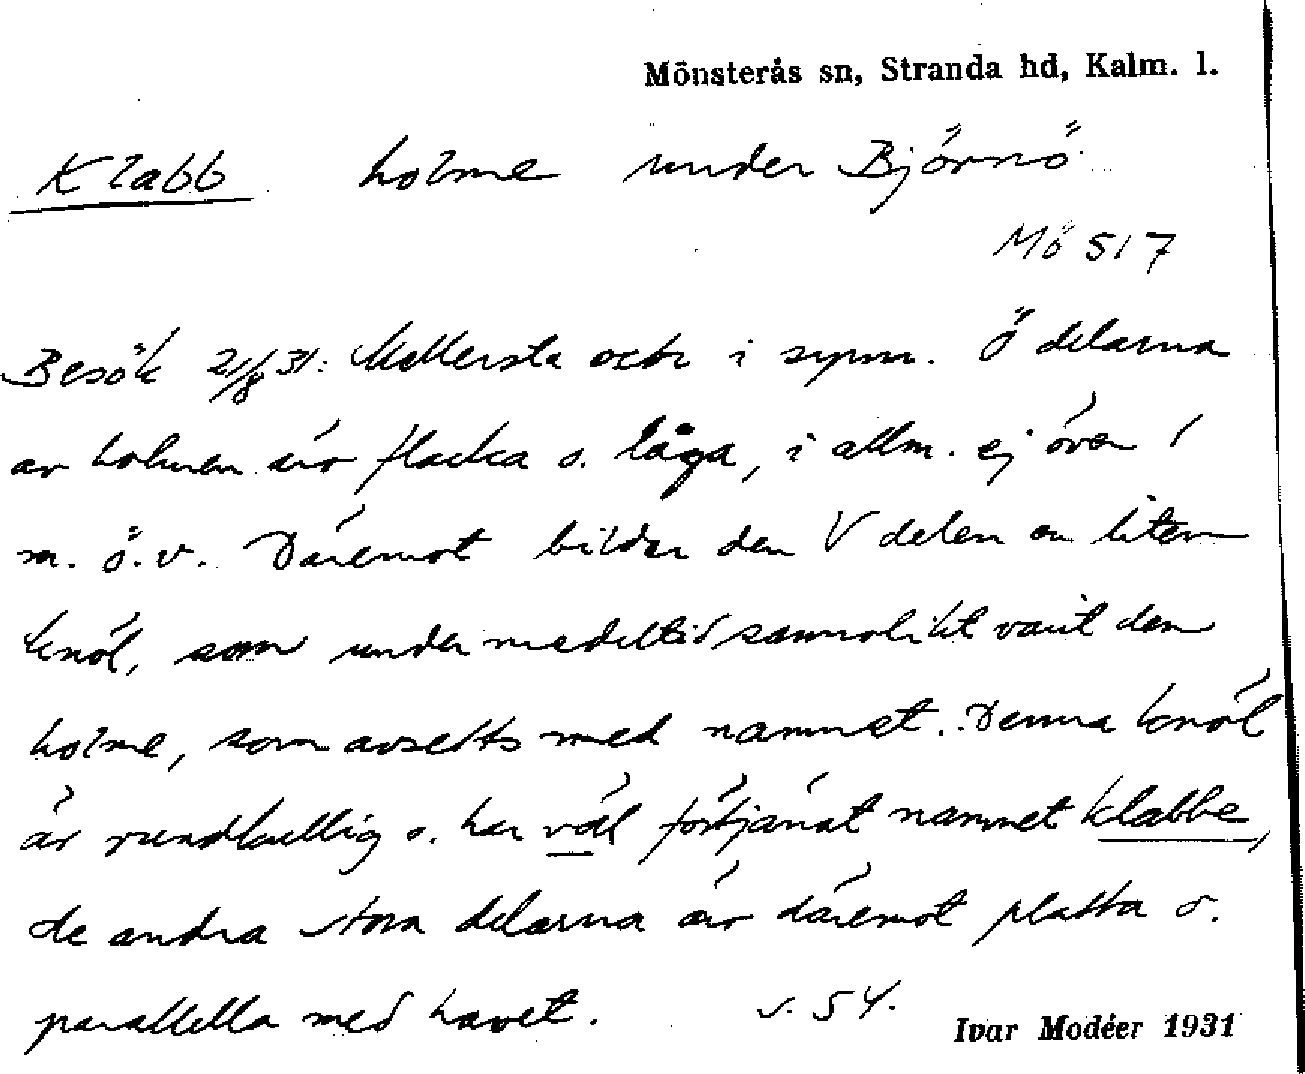 Mönsterås sn, Stranda hd, Kalm. l.
Klabb holme under Björnö
Mö 517
Besök 21/8 31: Mellersta och i synn. Ö delarna
av holmen är flacka o. låga, i allm. ej över 1
m. ö. v. Däremot bildar den V delen en liten
knöl, som under medeltid sannolikt varit den
holme, som avsetts med namnet. Denna knöl
är rundkullig o. har väl förtjänat namnet klabbe,
de andra stora delarna är däremot platta o.
parallella med havet. s. 54.
Ivar Modéer 1931